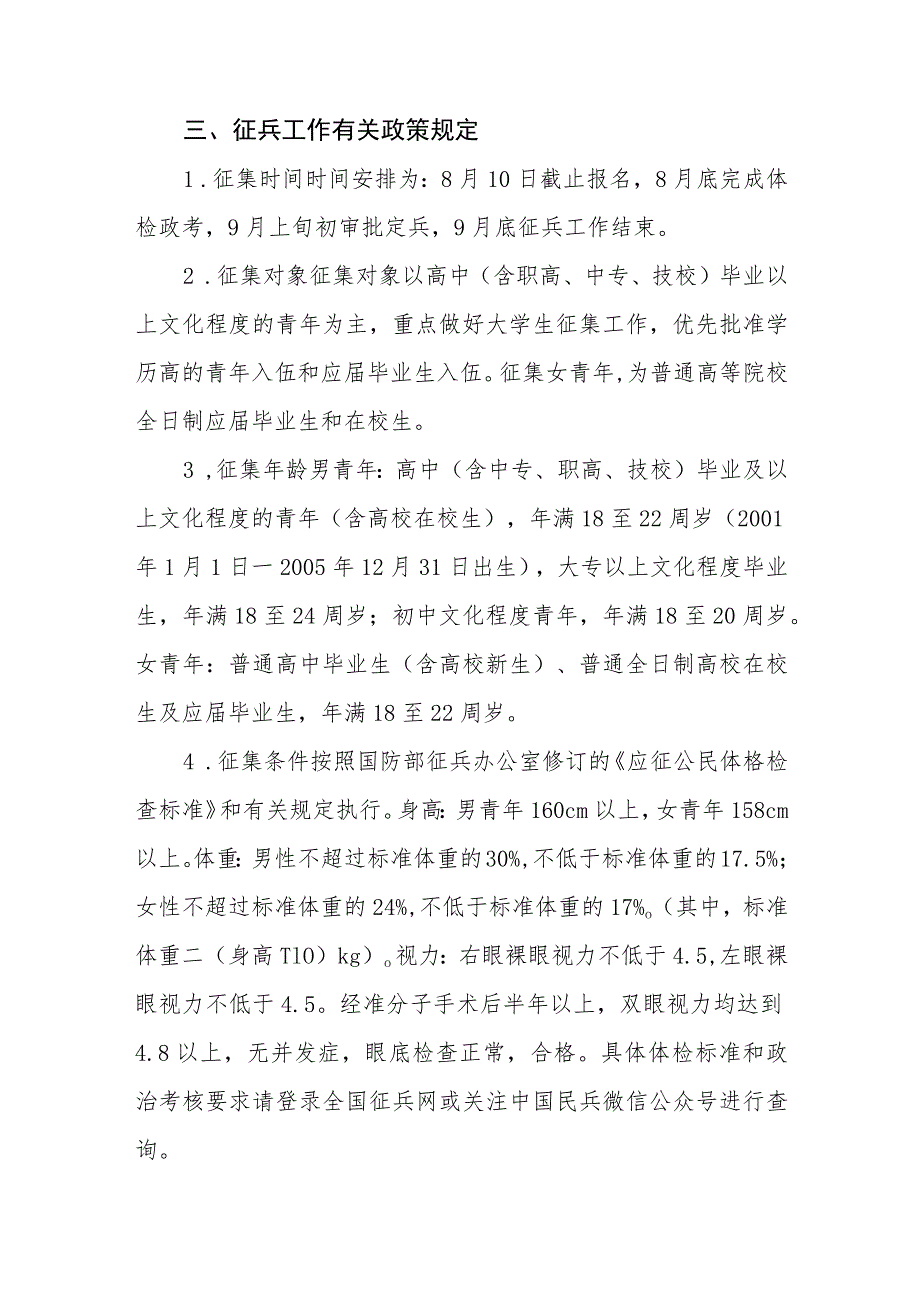 三、征兵工作有关政策规定
1.征集时间时间安排为：8月10日截止报名，8月底完成体
检政考，9月上旬初审批定兵，9月底征兵工作结束。
2.征集对象征集对象以高中（含职高、中专、技校）毕业以
上文化程度的青年为主，重点做好大学生征集工作，优先批准学
历高的青年入伍和应届毕业生入伍。征集女青年,为普通高等院校
全日制应届毕业生和在校生。
3,征集年龄男青年：高中（含中专、职高、技校）毕业及以
上文化程度的青年（含高校在校生），年满18至22周岁（2001
年1月1日一2005年12月31日出生），大专以上文化程度毕业
生，年满18至24周岁；初中文化程度青年，年满18至20周岁。
女青年：普通高中毕业生（含高校新生）、普通全日制高校在校
生及应届毕业生，年满18至22周岁。
4.征集条件按照国防部征兵办公室修订的《应征公民体格检
查标准》和有关规定执行。身高：男青年160cm以上，女青年158cm
以上。体重：男性不超过标准体重的30%,不低于标准体重的17.5%；
女性不超过标准体重的24%,不低于标准体重的17%o（其中，标准
体重二（身高TlO）kg）o视力：右眼裸眼视力不低于4.5,左眼裸
眼视力不低于4.5。经准分子手术后半年以上，双眼视力均达到
4.8以上，无并发症，眼底检查正常，合格。具体体检标准和政
治考核要求请登录全国征兵网或关注中国民兵微信公众号进行查
询。